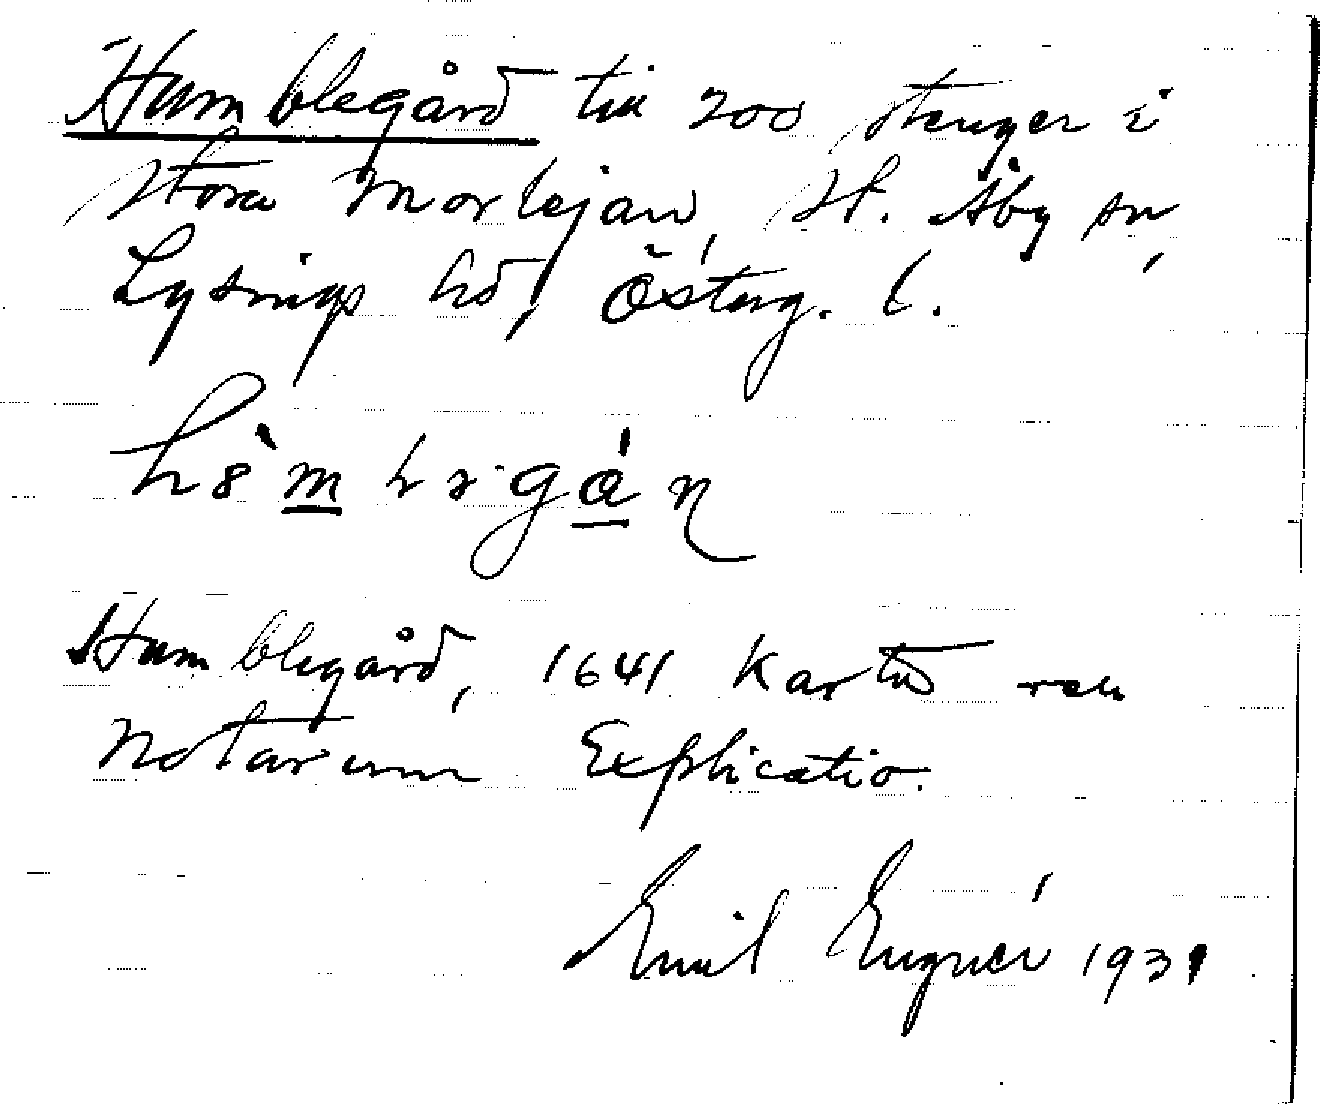 Humblegård till 200 stenger i
Stora Morlejan, St. Åby sn,
Lysings hd, Österg. l.
Humblegård, 1641 Karta
Notarum Explicatio.
Emil 1931